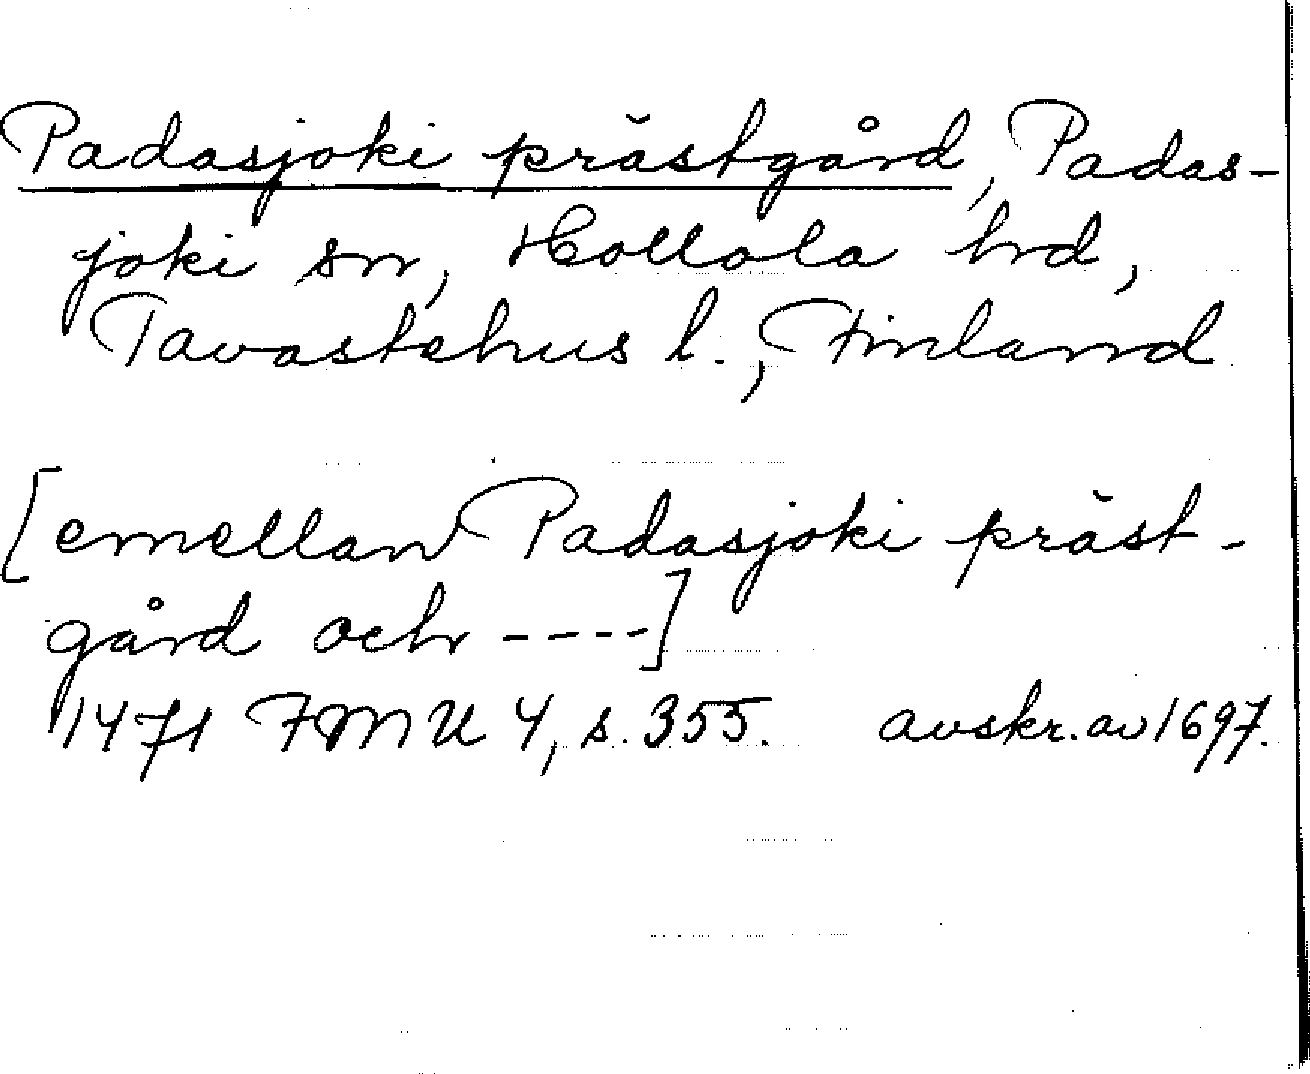 Padasjoki prästgård, Padas-
joki sn, Hollola hd,
Tavastehus l., Finland
[emellan Padasjoki präst-
gård och ----]
1471 FMU 4, s. 355. avskr. av 1697.